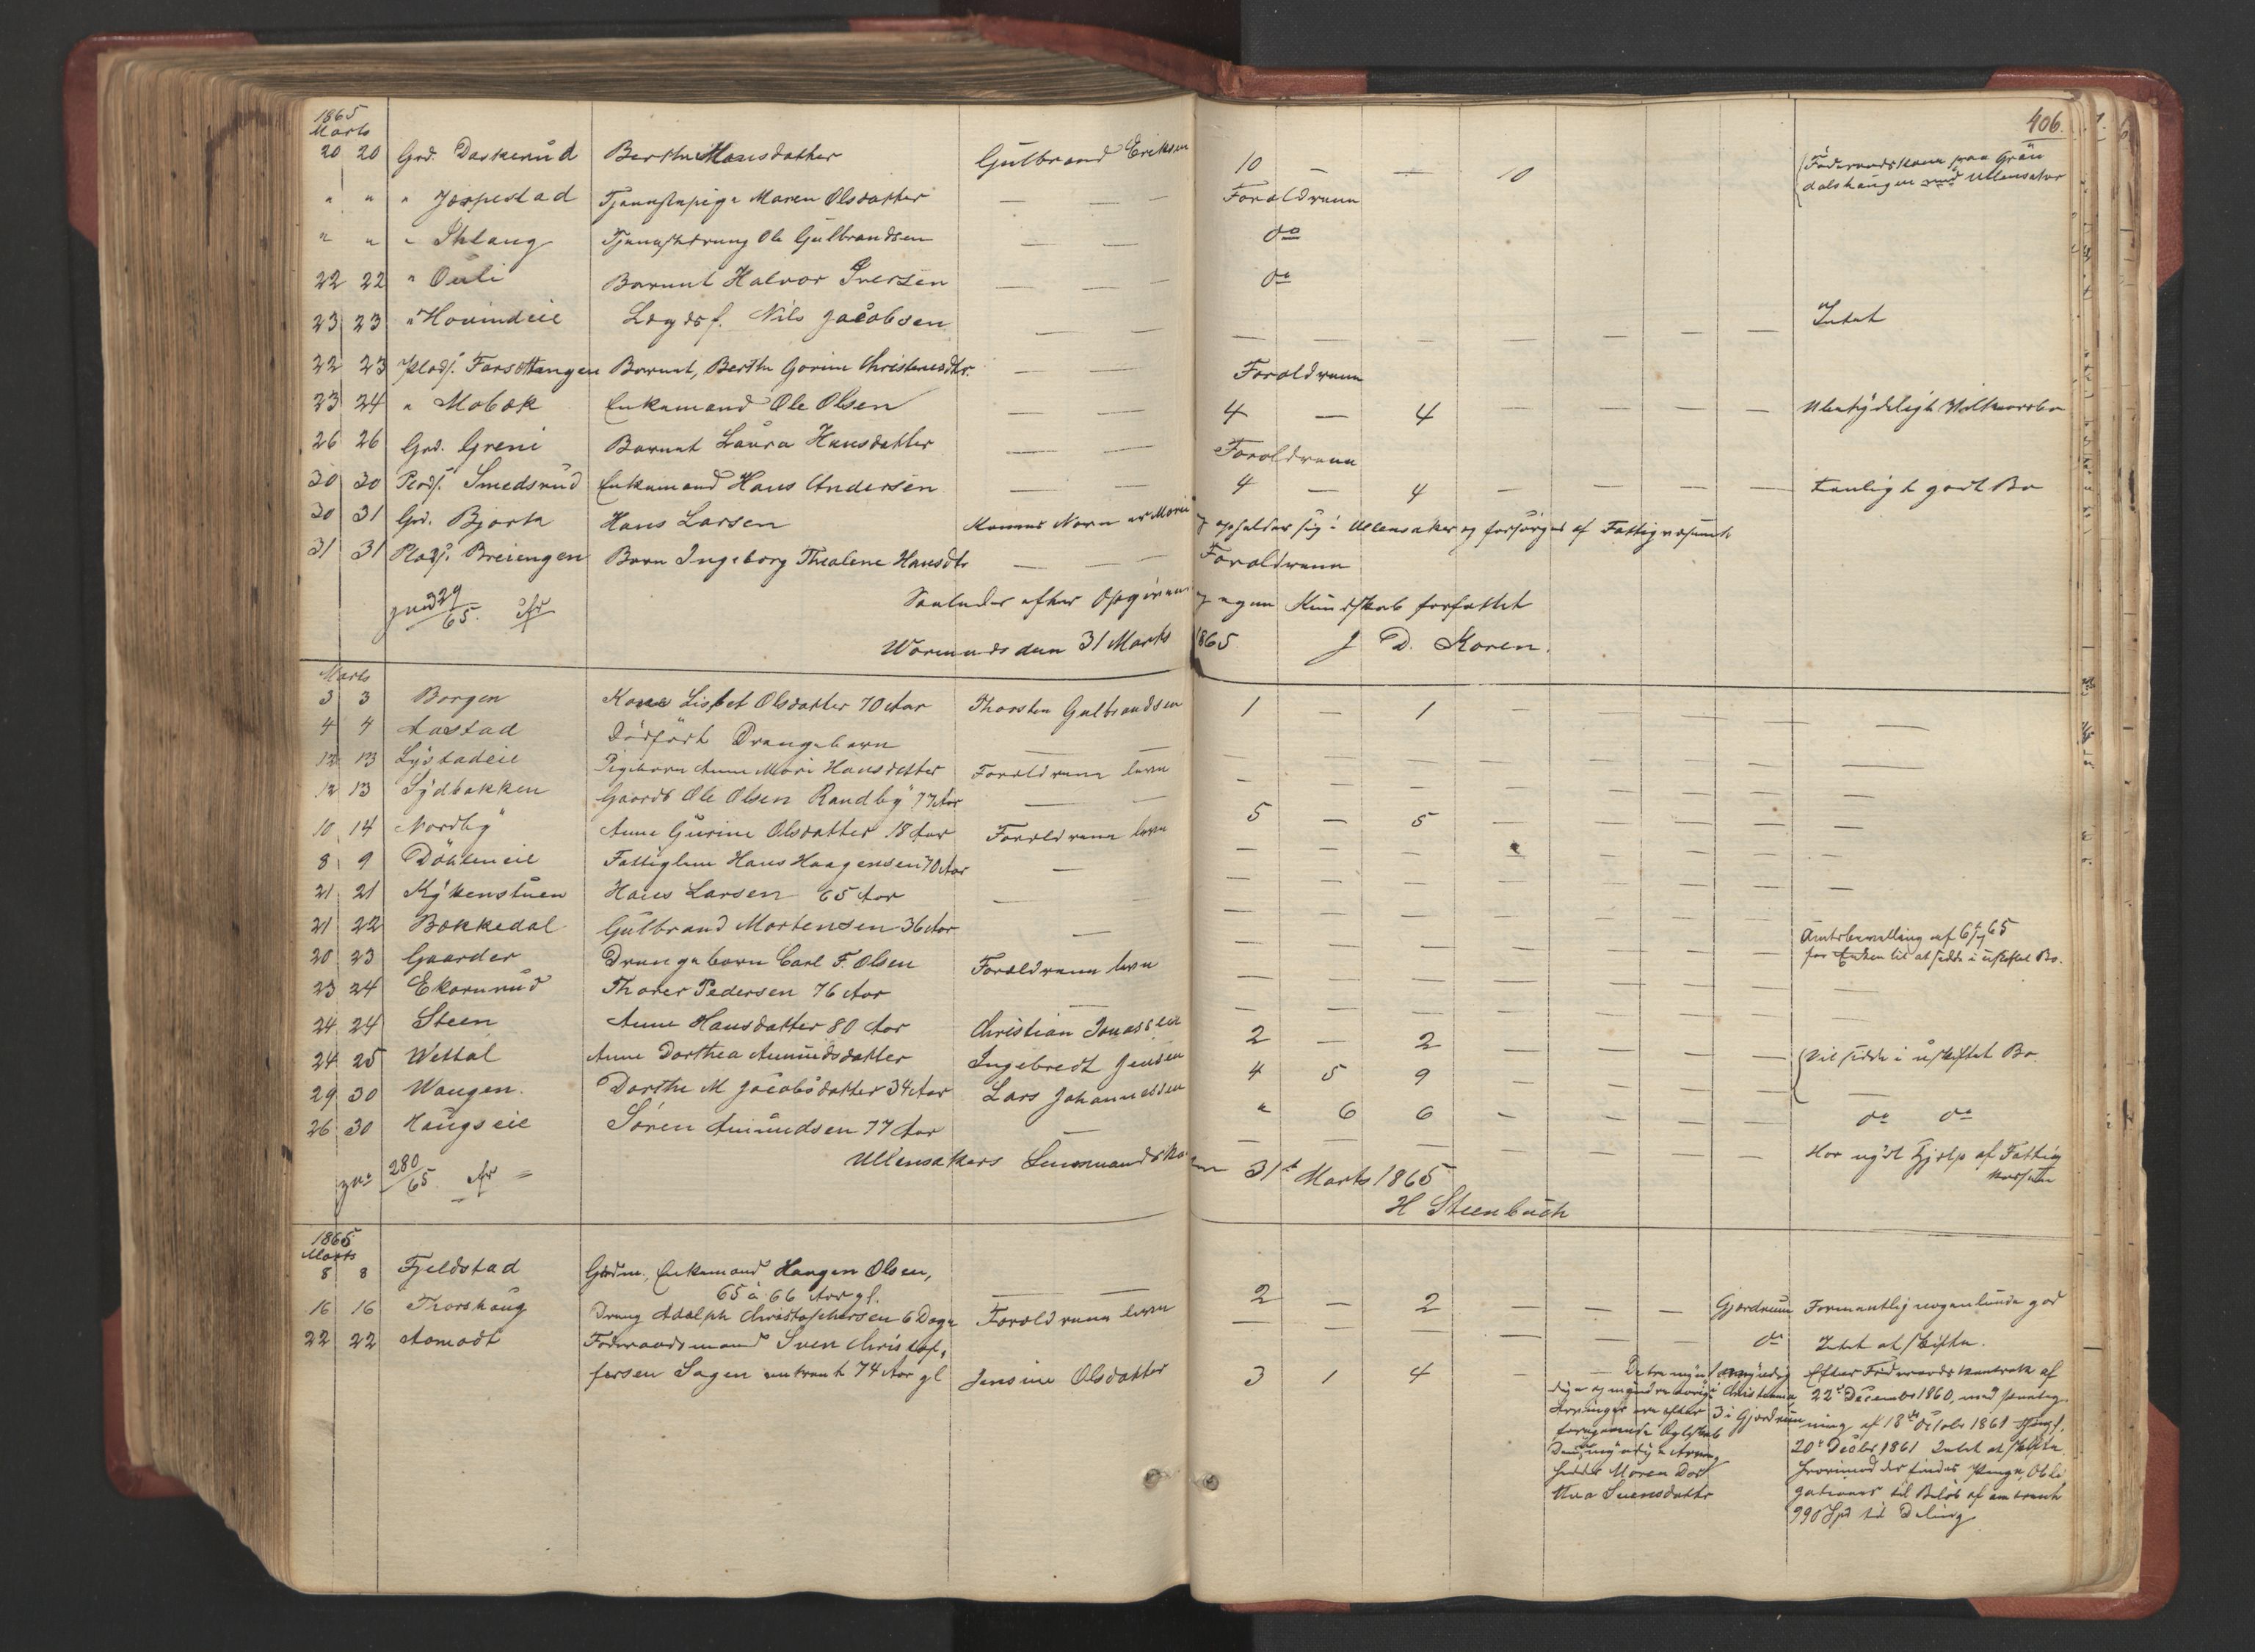 406.
1865
Marts
20 20 Grd. Daskerud Berthe Hansdatter Gulbrand Eriksen 10 — 10 Föderaadskone paa Grön
dalshaugen Ullensaker
" " " Jæspestad Tjenestepige Maren Olsdatter — — — Forældrene
" " " Tjenestedreng Ole Gulbrandsen — — — do
22 22 " Ouli Barnet Halvor Iversen — — — do
23 23 " Hovindeie Lægdsf. Nils Jacobsen — — — — — — — — — Intet
22 23 Plads. Farsottangen Barnet, Berthe Gorine Christensdtr. — — Forældrene
23 24 " Mobæk Enkemand Ole Olsen — — 4 — 4 — — — — Ubetydeligt
26 26 Grd. Greni Barnet Laura Hansdatter — — — Forældrene
30 30 Plads. Smedsrud Enkemand Hans Andersen — — 4 — 4 — — — — temligt godt Bo
30 31 Grd. Bjørta Hans Larsen Konens Navn er Marie og opholder sig i Ullensaker og forsörges af Fattigvæsenet
31 31 Plads. Breiengen Barn Ingeborg Thealene Hansdtr — — — Forældrene
Saaledes efter Opgivende og egen Kundskab forfattet
329/65.
Wormunds den 31 Marts 1865 J D. Koren.
Marts
3 3 Borgen Kone Lisbet Olsdatter 70 Aar Thorsten Gulbrandsen 1 — 1 — — — — —
4 4 Aastad Dödfödt Drengebarn — — — — — — — — —
12 13 Lystadeie Pigebarn Anne Mari Hansdatter Forældrene leve — — — — — — — —
12 13 Sydbakken Gaardb Ole Olsen Randby 77 Aar — — 5 — 5 — — — — —
10 14 Nordby Anne Gurine Olsdatter 18 Aar Forældrene leve — — — — — — — —
8 9 Döhleneie Fattiglem Hans Haagensen 70 Aar — — — — — — — — —
21 21 Kykenstuen Hans Larsen 65 Aar — — — — — — — —
21 22 Bakkedal Gulbrand Mortensen 36 Aar — — — — — — — — Amtsbevilling af 6/4 65
for Enken til at sidde i uskiftet Bo.
20 23 Gaarder Drengebarn Carl F. Olsen Forældrene leve — — — — — — — —
23 24 Ekornrud Thorer Pedersen 76 Aar — — — — — — — — —
24 24 Steen Anne Hansdatter 80 Aar Christian Jonassen 2 — 2 — — — — Vil sidde i uskiftet Bo.
24 25 Wettal Anne Dorthea Amundsdatter Ingebredt Jensen 4 5 9 — — — — —
29 30 Wangen. Dorthe M Jacobsdatter 34 Aar Lars Johannessen " 6 6 — — — — do do
26 30 Haugseie Sören Amundsen 77 Aar — — — — — — — — Har nydt Hjelp af Fattig
kassen
280/65.
Ullensakers Lensmandskontor 31te Marts 1865
H Steenbuch
1865
Marts
8 8 Fjeldstad Gaardm., Enkemand Haagen Olsen,
65 à 66 Aar gl. — — 2 — 2 — — — Gjerdrum Formentlig nogenlunde god
16 16 Thorshaug Dreng Adolph Christophersen 6 Dage Forældrene leve — — — — — — do Intet at skifte.
22 22 Aamodt Föderaadsmand Sven Christof,
fersen Sagen omtrent 74 Aar gl Jensine Olsdatter 3 1 4
De tre
Christiania
3 i Gjerdrum
Maren Dor
thea Svensdatter
Efter Föderaadskontrakt af
22de December 1860, med
af 18de October 1861
20de Decbr 1861 Intet at skifte
hvorimod der findes Penge, Obli
gationer til Belöb af omtrent
990 Spd til Deling